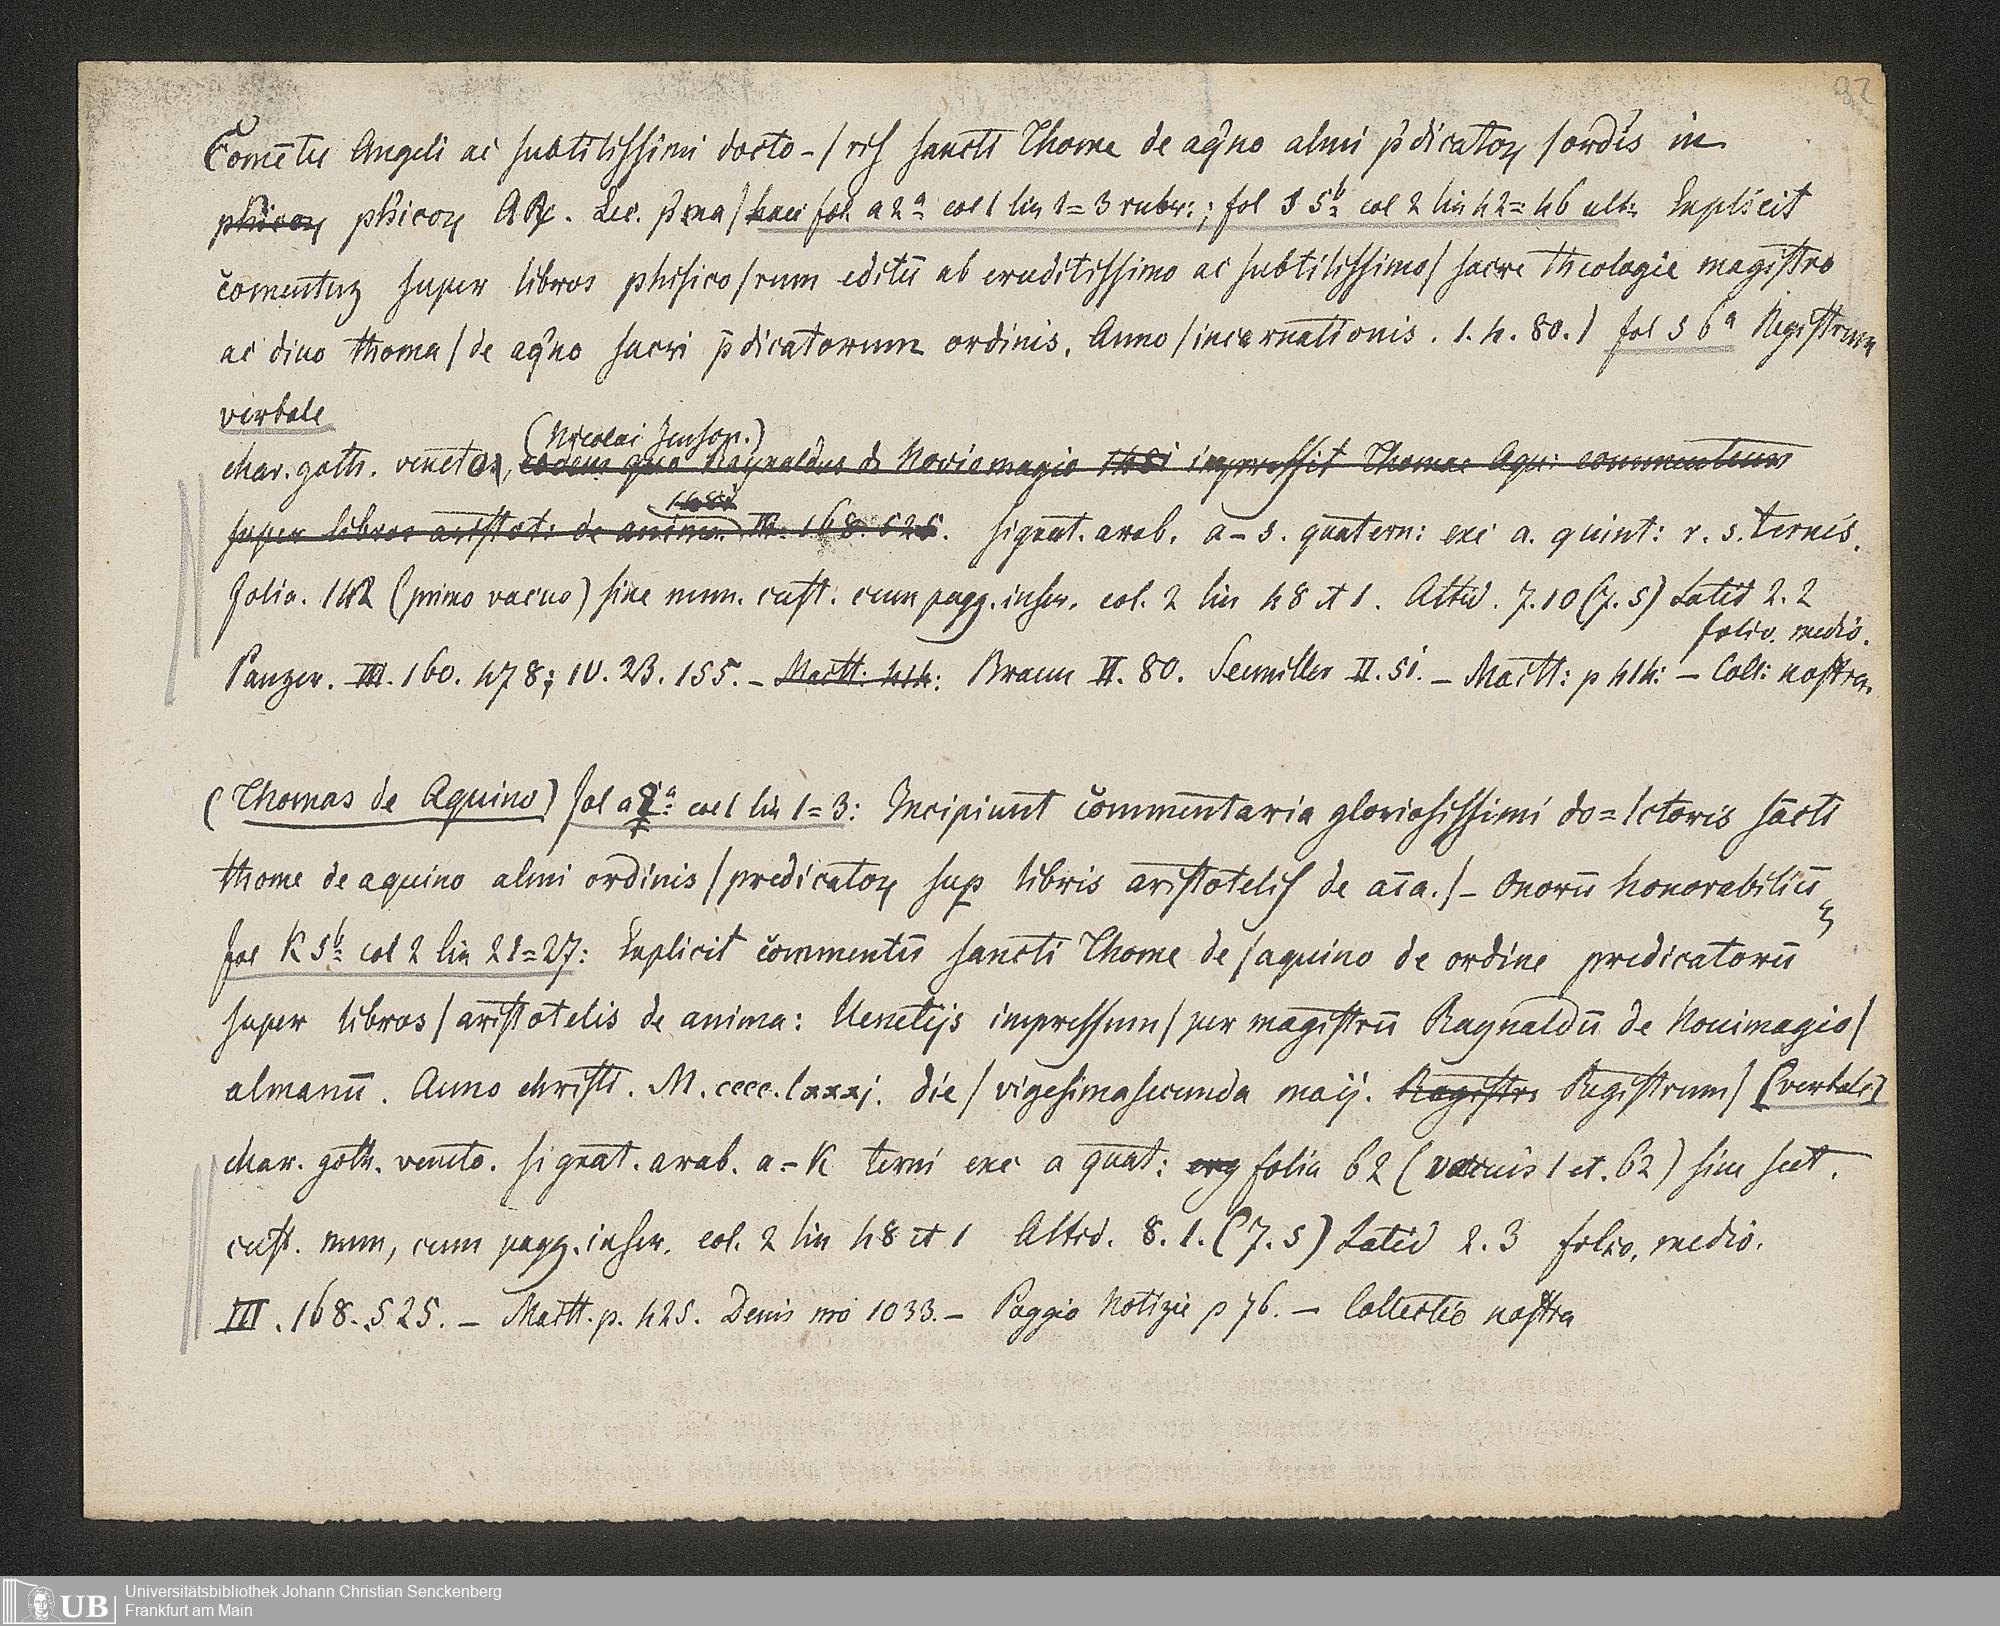 92
Comētū Angeli ac subtilissimi docto-/ris sancti Thome de aq̄no almi p̄dicatoꝝ /ordīs in
phīcoꝝ phīcoꝝ ARꝭ. Lec. p̄ma/ haec fol. a2ª col 1 lin 1=3 rubr:; fol s 5b col 2 lin 42=46 ult: Explicit
cōmentuꝫ super libros phisico/rum editū ab eruditissimo ac subtilissimo/ sacre theologie magistro
ac diuo thoma/de aq̄no sacri p̄dicatorum ordinis. Anno/incarnationis. 1.4.80.) fol s 6a Registrum
verbale
(Nicolai Jenson.)
char. goth. veneto, eodem quo Raynaldus de Noviomagio 1481 impressit Thomae Aqu: commentum
1481
super libros aristot: de anima. III. 168. 525. signat. arab. a-s. quatern: exc a. quint: r. s. ternis.
folia. 142 (primo vacuo) sine num. cust. cum pagg. inscr. col. 2 lin 48 et 1. Altid. 7.10 (7.5) Latid 2.2
folio. medio.
Panzer. III. 160. 478; IV. 23. 155. - Maitt: 414: Braun II. 80. Seemiller II. 51. - Maitt: p 414: - Coll: nostra.
(Thomas de Aquino) fol a 2a col 1 lin 1=3: Incipiunt cōmmentaria gloriosissimi do=/ctoris sācti
thome de aquino almi ordinis/predicatoꝝ sup libris aristotelis de aīa./- Onorū honorabiliū
fol K 5b col 2 lin 21=27: Explicit cōmmentū sancti Thome de/aquino de ordine predicatorū
super libros/aristotelis de anima: Uenetijs impressum/per magistrū Raynaldū de Nouimagio/
almanū. Anno christi. M. cccc. lxxxj. die/vigesimasecunda maij. Registro Registrum/ (verbale)
char. goth. veneto. signat. arab. a=K terni exc a quat: folia 62 (vacuis 1 et. 62) sine
cust. num, cum pagg. inscr. col. 2 lin 48 et 1 Altid. 8.1. (7.5) Latid 2.3 folio, medio.
III. 168. 525. - Maitt. p. 425. Denis no 1033. - Poggio Notizie p 76. - Collectio nostra
UB Universitätsbibliothek Johann Christian Senckenberg
Frankfurt am Main